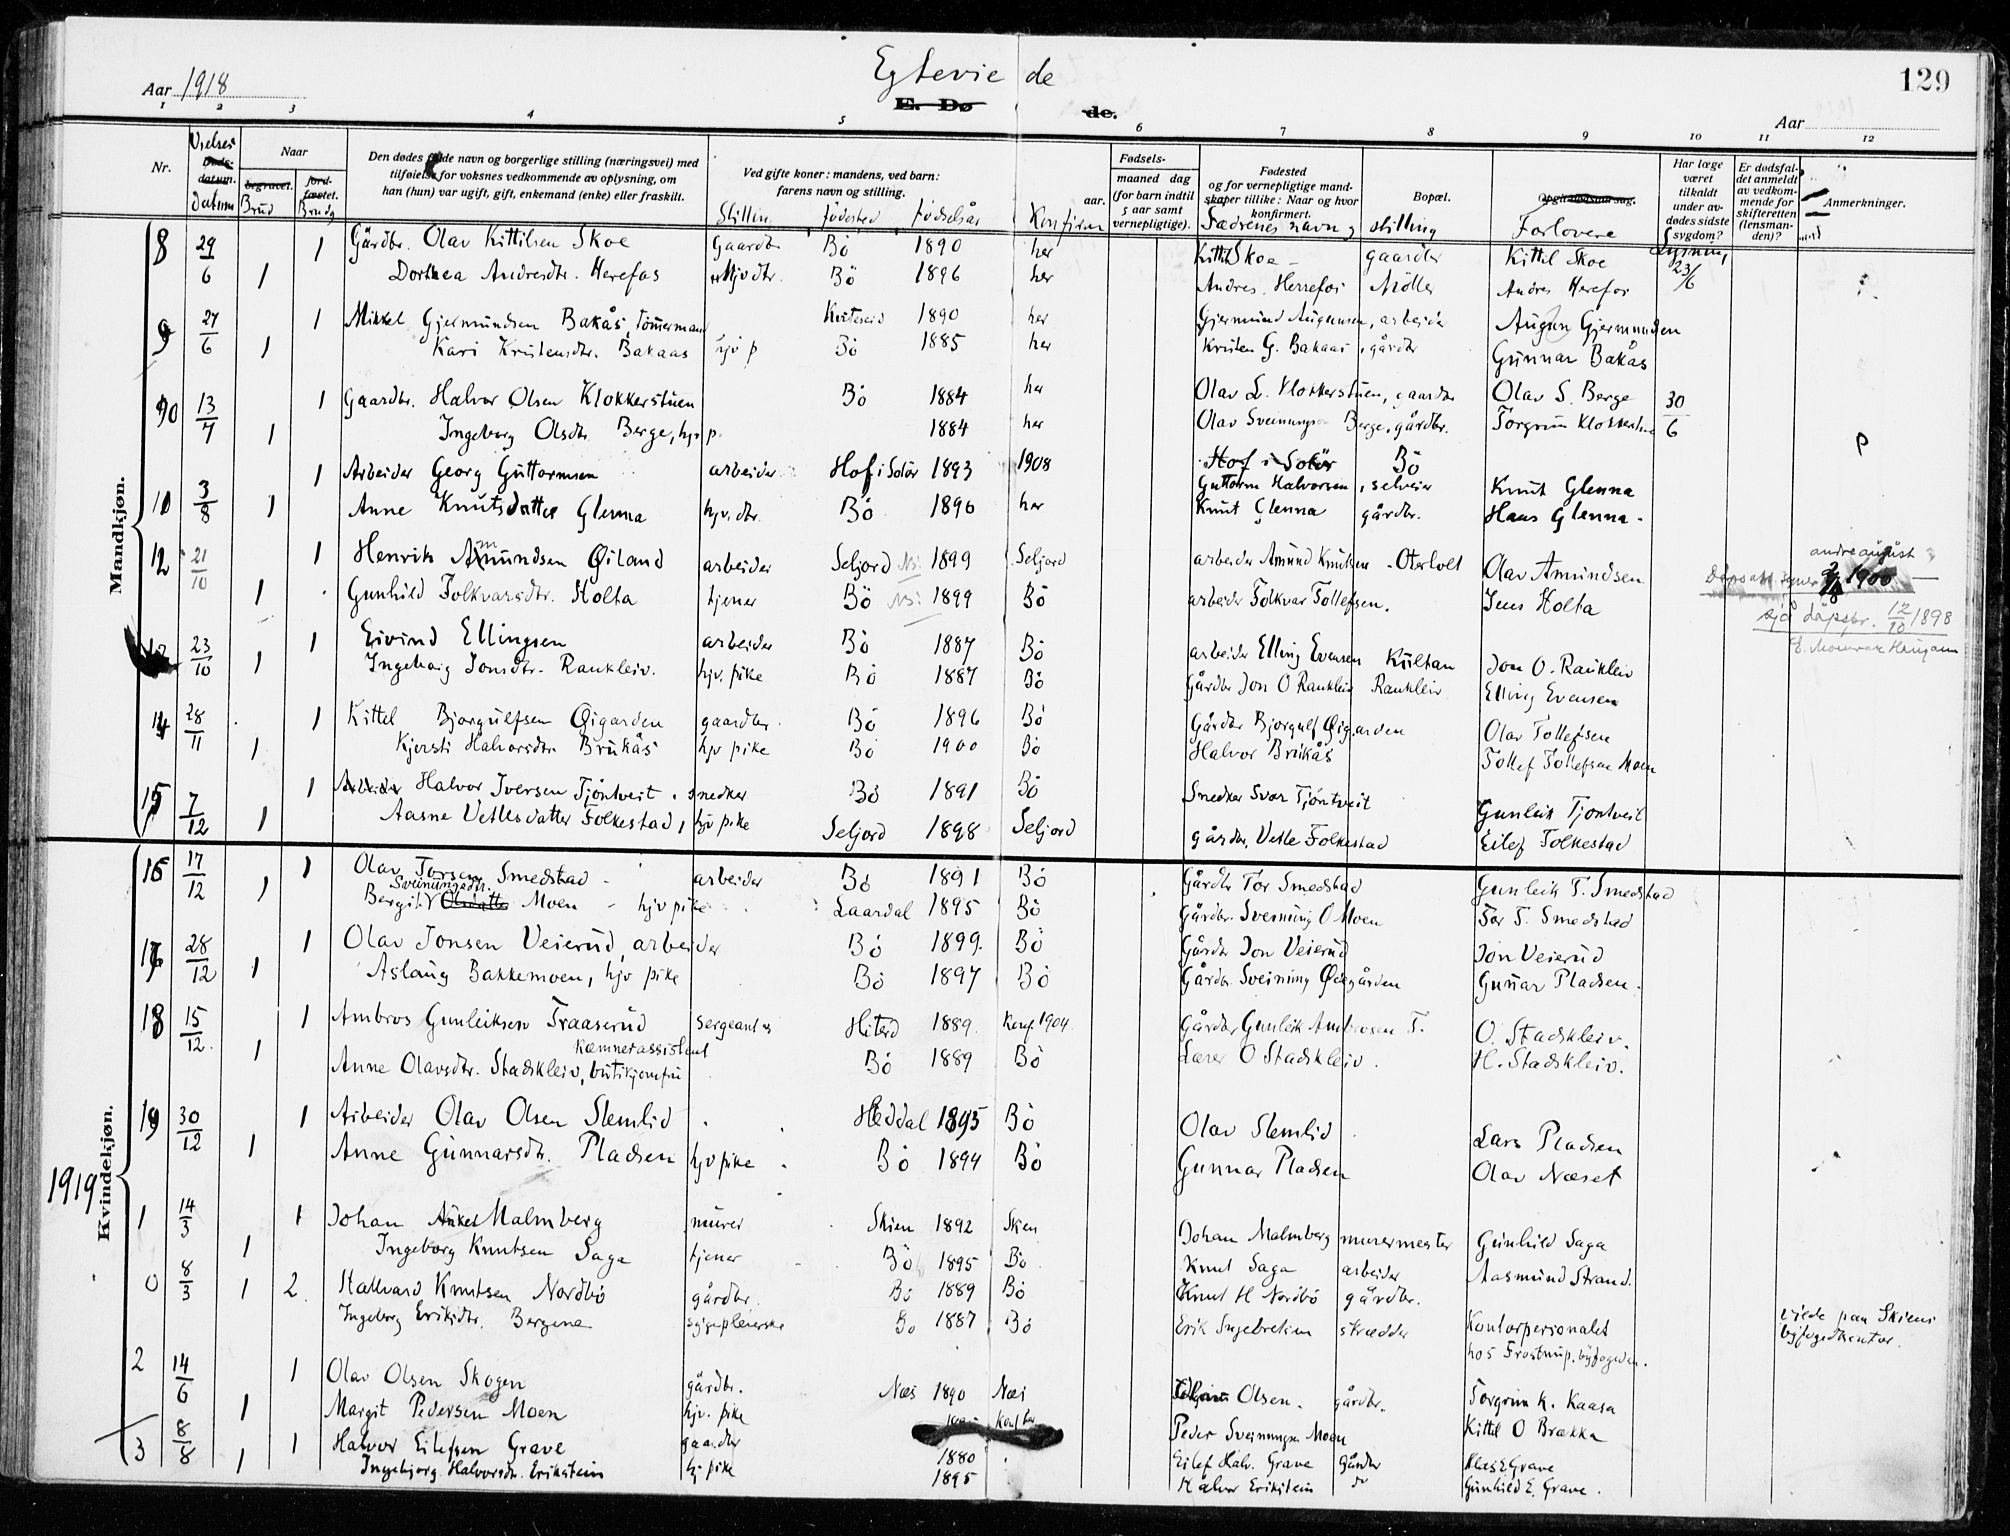 Egtevie de
129
Aar 1918
E. Dø de.
Aar
1 2 3 4 5 6 7 8 9 10 11 12
Nr.
Vielses datum
Naar
begravet. Brud
jord-fæstet. Brudg
Den dødes fulde navn og borgerlige stilling (næringsvei) med
tilføielse for voksnes vedkommende av oplysning, om
han (hun) var ugift, gift, enkemand (enke) eller fraskilt.
Ved gifte koner: mandens, ved barn:
farens navn og stilling.
Stillin. fødested fødselsår
Konfirm aar.
Fødsels-
maaned dag
(for barn indtil
5 aar samt
vernepligtige).
Fødested
og for vernepligtige mand-
skaper tillike: Naar og hvor
konfirmert.
Fædrenes navn og stilling
Bopæl.
Forlovere
Har læge
været
tilkaldt
under av-
dødes sidste
sygdom?
Lysning
Er dødsfal-
det anmeldt
av vedkom-
mende for
skifteretten
(lensman-
den)?
Anmerkninger.
Mandkjøn.
8 29/6 1 Gårdbr. Olav Kittilsen Skoe Gaardbr Bö 1890 her Kittil Skoe gaardbr Kittil Skoe 23/6
1 Dorthea Andresdtr. Herefos Bö 1896 her Andres Herrefos Möller Andres Herefos
9 27/6 1 Mikkel Gjermundsen Bakås, Tömermand Kviteseid 1890 her Gjermund Augunsen, arbeider Augun Gjermundsen
1 Kari Kristensdtr. Bakaas hjv p Bö 1885 her Kristen G. Bakaas, gårdbr Gunnar Bakås
10 13/7 1 Gaardbr. Halvor Olsen Klokkerstuen Bö 1884 her Olav L. Klokkerstuen, gaardbr Olav S. Berge 30/6
1 Ingeborg Olsdtr. Berge, hjv p. 1884 her Olav Sveinungsen Berge, gårdbr. Torgrim Klokkerstuen
11 3/8 1 Arbeider Georg Guttormsen arbeider Hof i Solör 1893 1908 Hof i Solör Bö
Guttorm Halvorsen, selveier Knut Glenna
1 Anne Knutsdatter Glenna hjv. dtr. Bö 1896 her Knut Glenna gårdbr. Hans Glenna
12 21/10 1 Henrik Amundsen Øiland arbeider Seljord 1899 Seljord arbeider Amund Knutsen Oterholt Olav Amundsen
1 Gunhild Folkvarsdtr. Holta tjener Bö 1899 Bö arbeider Folkvar Tollefsen. Jens Holta
andre august
1900
sjå dåpspr. 12/10 1898
13 23/10 1 Eivind Ellingsen arbeider Bö 1887 Bö arbeider Elling Evensen Kultan Jon O. Raukleiv
1 Ingeborg Jonsdtr. Raukleiv. hjv. pike Bö 1887 Bö Gårdbr Jon O Raukleiv Raukleiv Elling Evensen
14 28/11 1 Kittel Bjorgulfsen Øigarden gaardbr. Bö 1896 Bö Gårdbr Bjorgulf Øigarden Olav Tollefsen
1 Kjersti Halvorsdtr Brukås hjv pike Bö 1900 Bö Halvor Brukås Tollef Tollefsen Moen
15 7/12 1 Arbeider Halvor Iversen Tjöntveit, snedker Bö 1891 Bö Snedker Tjöntveit Gunleik Tjontveit
1 Aasne Vetlesdatter Folkestad, hjv pike Seljord 1898 Seljord gårdbr. Vetle Folkestad Eilef Folkestad
Kvindekjøn.
16 17/12 1 Olav Torsen Smedstad arbeider Bö 1891 Bö Gårdbr Tor Smedstad Gunleik T. Smedstad
1 Bergit Sveinungsdtr. Olsdatter Moen - hjv pike Laardal 1895 Bö Gårdbr. Sveinung O Moen Tor T. Smedstad
17 28/12 1 Olav Jonsen Veierud, arbeider Bö 1899. Bö Gårdbr Jon Veierud Jon Veierud
1 Aslaug Bakkemoen, hjv pike Bö 1897 Bö Gårdbr. Sveinung Ødegården Gunnar Pladsen.
18 15/12. 1 Ambros Gunleiksen Traaserud sergeant og Hiterd 1889. Konf. 1904 Gårdbr Gunleik Ambrosen T. O. Stadskleiv.
Kæmnerassistent
1 Anne Olavsdtr. Stadskleiv, butikjomfru Bö 1889 Bö Lærer O Stadskleiv. H. Stadskleiv.
19 30/12 1 Arbeider Olav Olsen Slemlid Heddal 1895 Bö Olav Slemlid Lars Pladsen
1 Anne Gunnarsdtr. Pladsen hjv pike Bö 1894 Bö Gunnar Pladsen Olav Næset
1919
1 14/3 1 Johan Anker Malmberg murer Skien 1892 Skien Johan Malmberg murermester Gunhild Saga
1 Ingeborg Knutsen Saga tjener Bö 1895 Bö Knut Saga arbeider Aasmund Strand.
0 8/3 1 2. Hallvard Knutsen Nordbö gårdbr. Bö 1889 Bö Knut H Nordbö gårdbr. Kontorpersonalet
Ingeborg Eriksdtr. Bergene sygepleierske Bo 1887 Bö Erik Ingebretsen skrædder hos Frostrup, byfogden.
viede paa Skiens
byfogedkontor.
2 14/6 1 Olav Olsen Skogen gårdbr. Næs 1890 Næs Olsen. gårdbr. Torgrim K. Kaasa
1 Margit Pedersen Moen hjv. pike Peder Sveinungsen Moen Kittil O Brække
3 8/8 1 Halvor Eilefsen Grave gaardbr 1880 Eilef Halv. Grave Gårdbr Grave
1 Ingebjorg Halvorsdtr. Erikstein hj. pike 1895 Halvor Erikstein do Gunhild E. Grave.